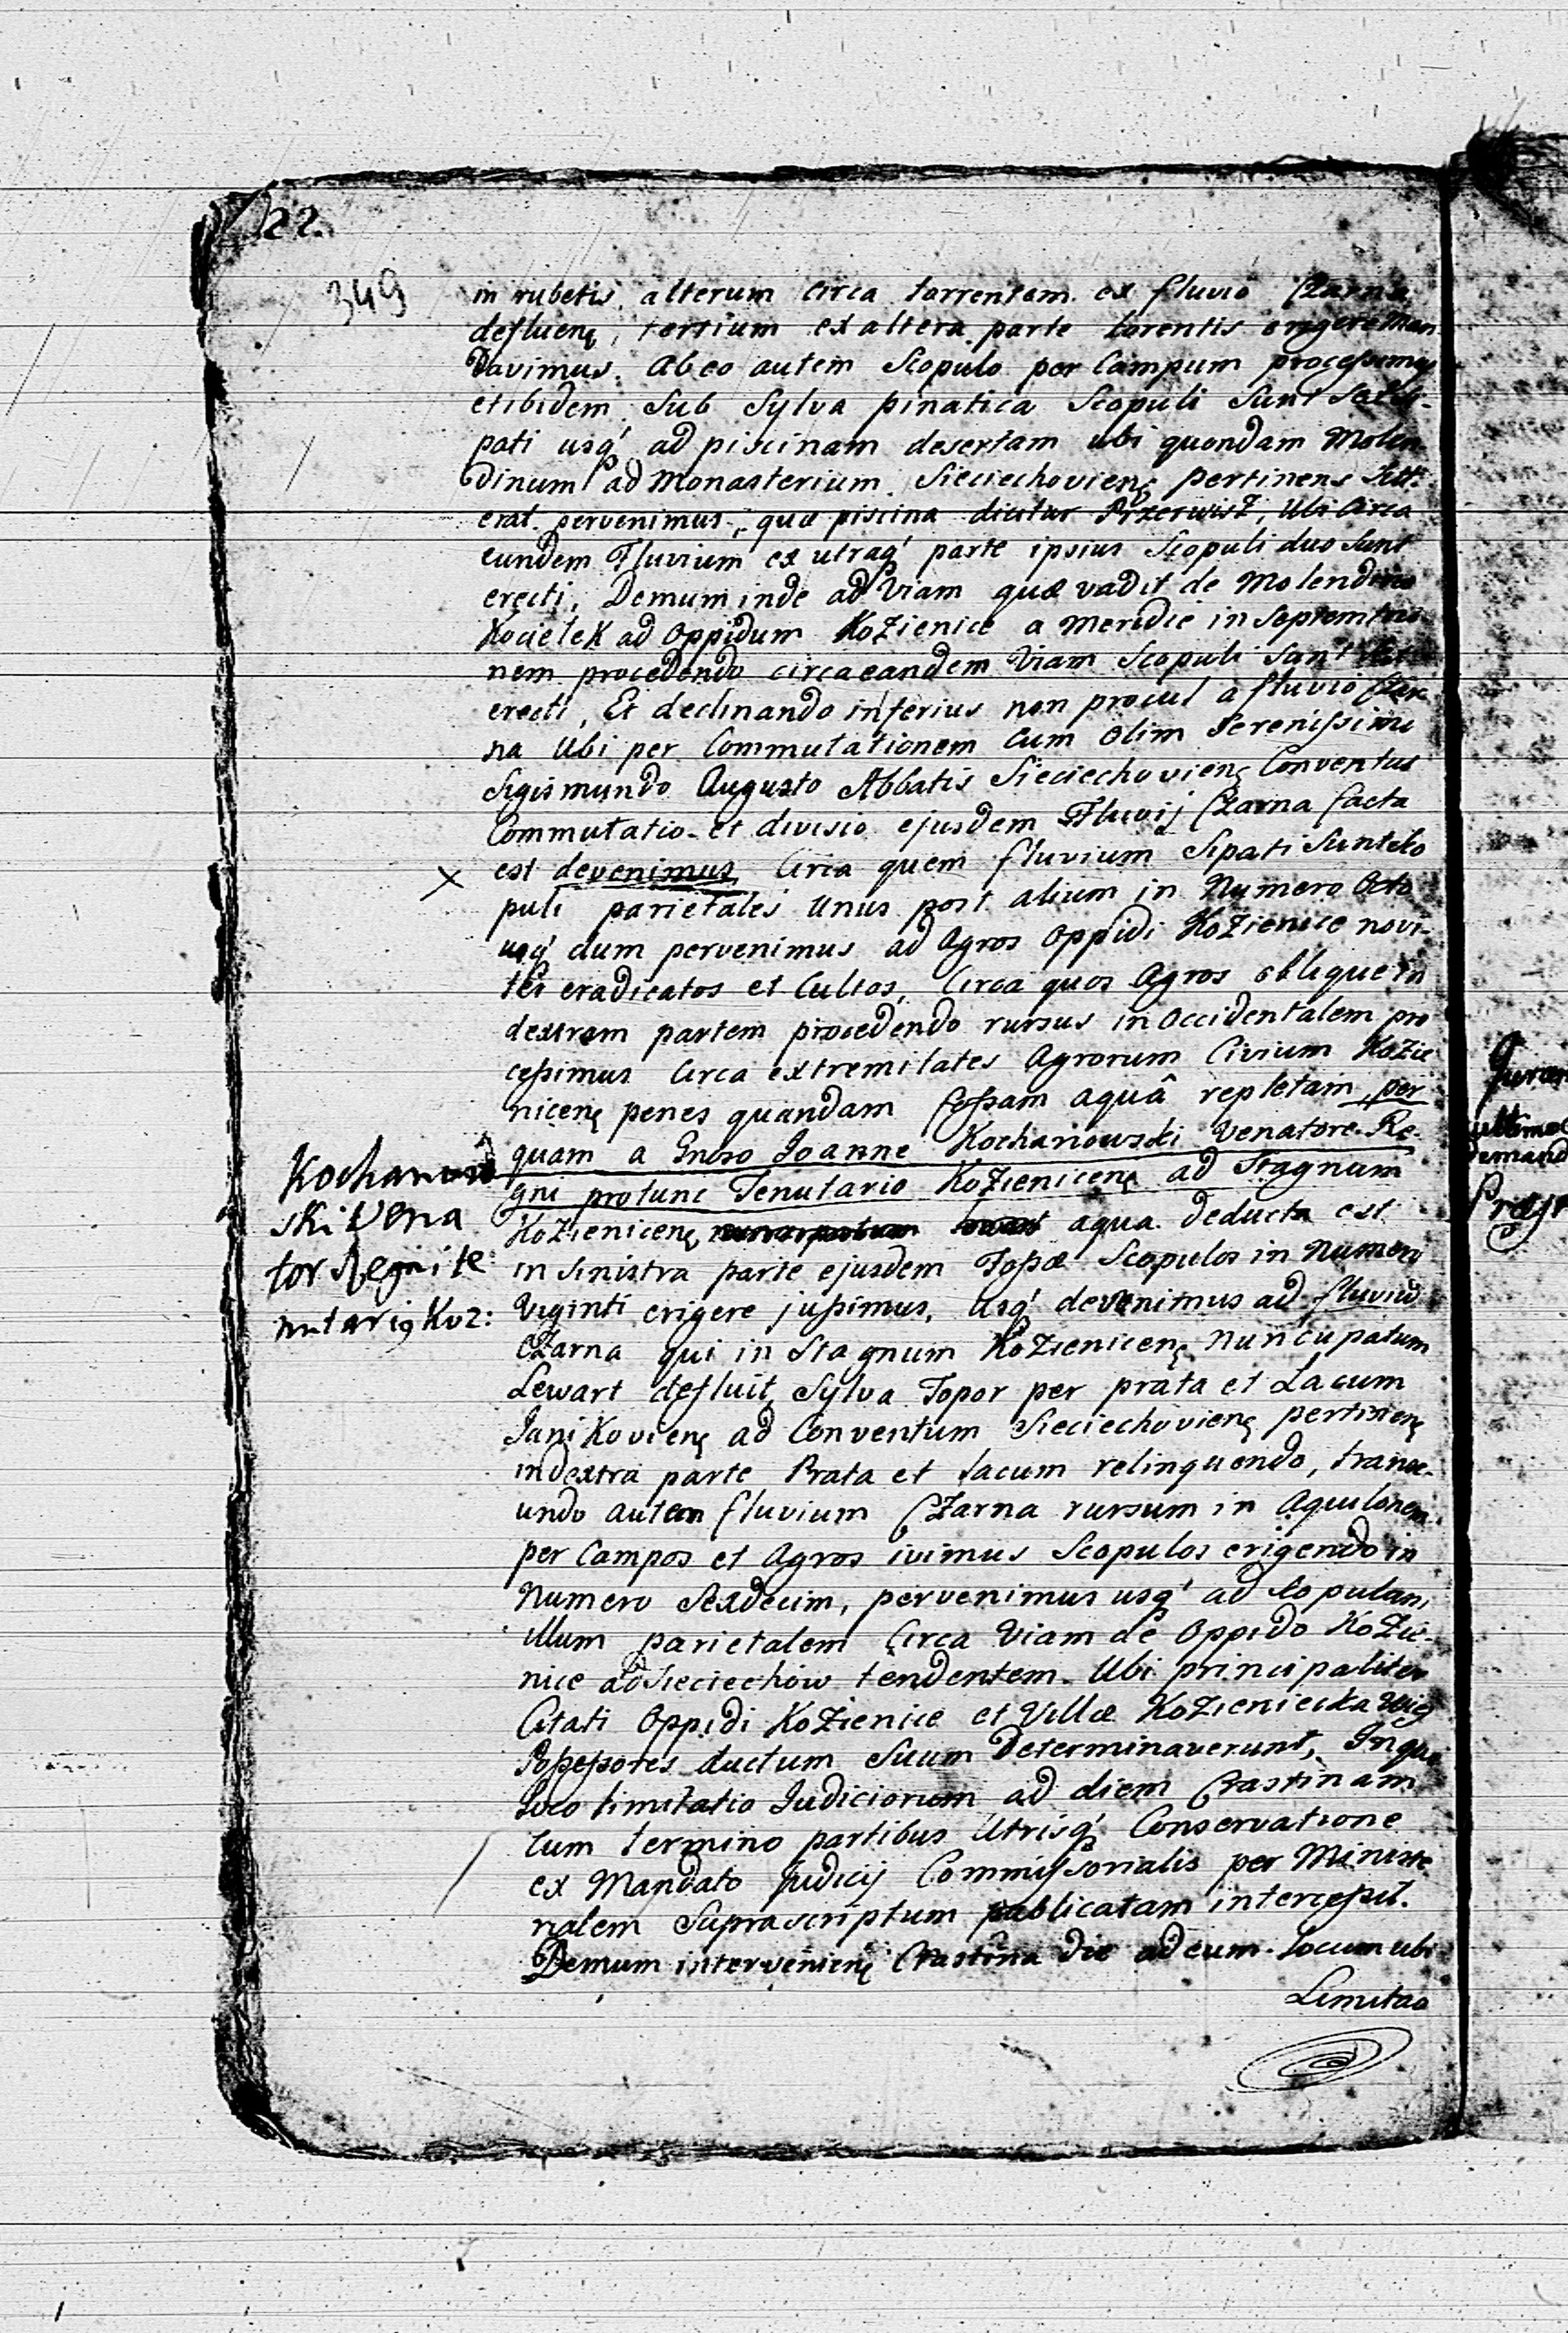 22.
349
in rubetis, alterum circa torrentem ex fluvio Czarna
defluenę, tertium ex altera parte torentis erigere Man
davimus. Ab eo autem Scopulo per Campum processimus
et ibidem Sub Sylva pinatica Scopuli Sunt
pati usq' ad piscinam desertam ubi quondam Molen
dinum ad Monasterium Sieciechovienę pertinens
erat pervenimus, quæ piscina dicitur Przerwisz, Ubi Circa
eundem Fluvium ex utraq' parte ipsius Scopuli duo Sunt
erecti, Demum inde ad Viam quæ vadit de Molendino
Kociełek ad Oppidum Kozienice a Meridie in Septemtrio
nem procedendo circa eandem Viam Scopuli Sunt
erecti, Et declinando inferius non procul a fluvio Czar
na Ubi per Commutationem Cum Olim Serenissimo
Sigismundo Augusto Abbatis Sieciechovienę Conventus
Commutatio et divisio ejusdem Fluvij Czarna facta
x est devenimus Circa quem fluvium Sipati Sunt Sco
puli parietales Unus post alium in Numero Octo
usq' dum pervenimus ad Agros Oppidi Kozienice novi-
ter eradicatos et Cultos, Circa quos Agros oblique in
dextram partem procedendo rursus in Occidentalem pro
cessimus Circa extremitates Agrorum Civium Kozie
nicenę penes quandam fossam aquâ repletam, per
quam a Gnoso Joanne Kochanowski Venatore Re
gni protunc Tenutario Kozienicenę ad Stagnum
Kozienicenę aqua deducta est
in sinistra parte ejusdem Fossæ Scopulos in Numero
Viginti erigere jussimus, Usq' devenimus ad fluviũ
Czarna qui in Stagnum Kozienicenę nuncupatum
Lewart defluit, Sylva Topor per prata et Lacum
Janikovienę ad Conventum Sieciechovienę pertinenę
in dextra parte Prata et Lacum relinquendo, transe-
undo autem fluvium Czarna rursum in Aquilonem
per Campos et Agros ivimus Scopulos erigendo in
Numero Sexdecim, pervenimus usq' ad Scopulum
illum parietalem Circa Viam de Oppido Kozie-
nice ad Sieciechow tendentem. Ubi principaliter
Citati Oppidi Kozienice et Villæ Kozieniecka Wieś
Possessores ductum Suum Determinaverunt, In quo
loco limitatio Judiciorum ad diem Crastinam
Cum termino partibus Utrisq' Conservatione
ex Mandato Judicij Commissorialis per Ministe
rialem Suprascriptum publicatam intercessit.
Demum intervenienę Crastina die ad eum locum ubi
Limitao
Kochanow
ski Vena
tor Regni te
nutariq Koz: